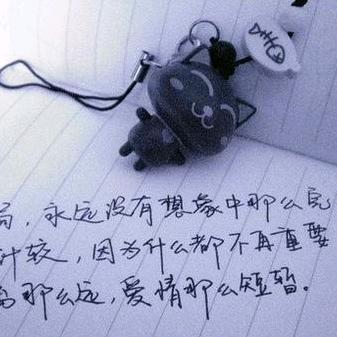 局，永远没有想象中那么完
计较，因为什么都不再重要
离那么远，爱情那么短暂。